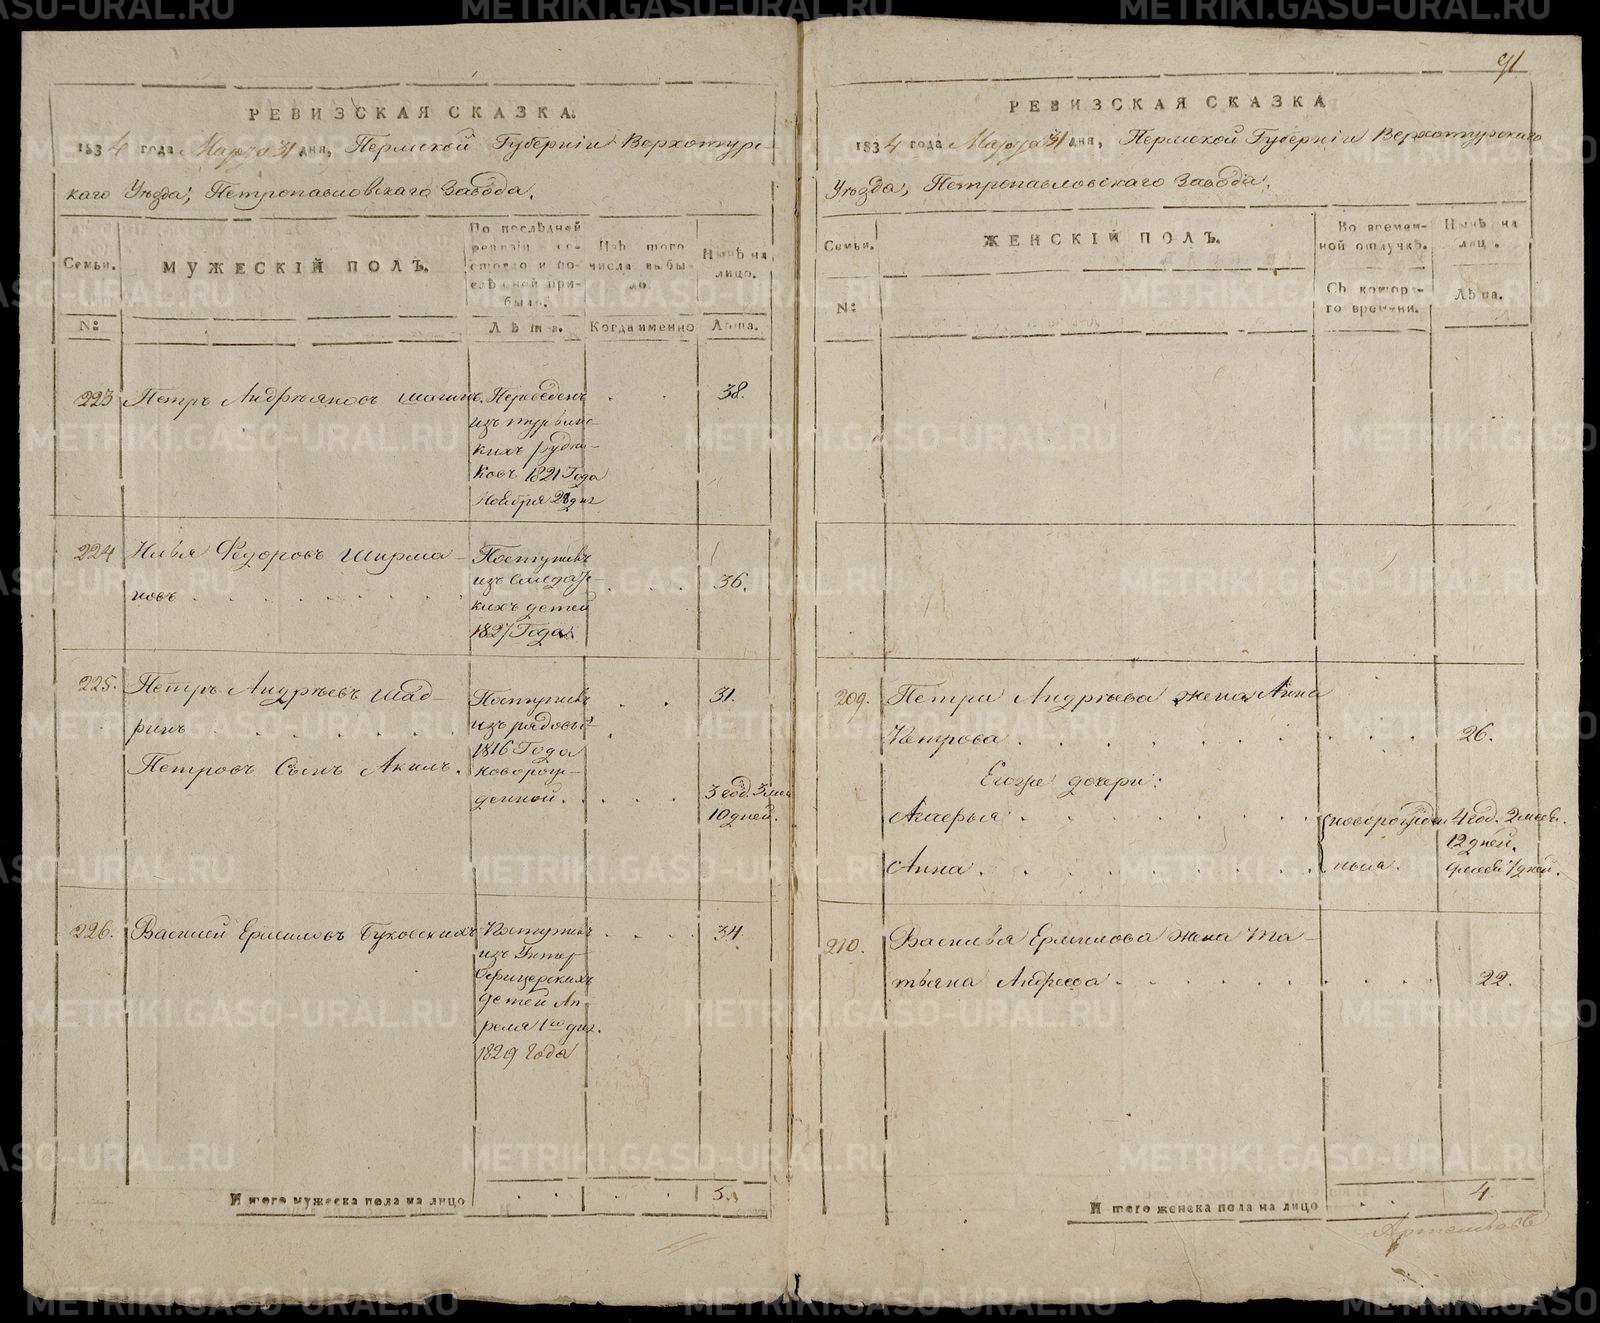 91
РЕВИЗСКАЯ СКАЗКА.
1834 года Марта 31 дня, Пермской Губерніи Верхотурс-
каго Уѣзда, Петропавловскаго Завода.
Семьи.
№:
МУЖЕСКІЙ ПОЛЪ.
По послѣдней
ревизіи со-
стояло и по-
слѣ оной при-
было.
Лѣта.
Изъ того
числа выбы-
ло.
Когда именно
Нынѣ на
лицо.
Лѣта.
223 Петръ Андрѣяновъ Переведенъ 38.
изъ
кихъ рудни-
ковъ 1821 Года
Ноября 28 дня
224 Илья Федоровъ Ширма- Поступилъ
новъ изъ Солдатс- 36.
кихъ детей
1827 Года.
225. Петръ Андрѣевъ Шад- Поступилъ 31.
ринъ изъ рядовы
1816 Года
Петровъ Сынъ Акилъ. новорож-
денной. 3 год. 3 мес
10 дней.
226. Василей Ермиловъ Буховскихъ Поступилъ 34.
изъ Унтер
Офицерскихъ
детей Ап-
реля 1го дня.
1829 Года
И того мужеска пола на лицо 5.
РЕВИЗСКАЯ СКАЗКА
1834 года Марта 31 дня, Пермской Губерніи Верхотурскаго
Уѣзда, Петропавловскаго Завода.
Семьи.
№:
ЖЕНСКІЙ ПОЛЪ.
Во времен-
ной отлучкѣ.
Съ котора-
го времени.
Нынѣ на
лицо.
Лѣта.
209. Петра Андрѣева жена Анна
Петрова 26.
Егоже дочери:
новорожден 4 год. 2 месе.
12 дней.
Анна ныя. 9 месе 7 дней.
210. Василья Ермилова жена Та-
тьяна Андреева 22.
И того женска пола на лицо 4
METRIKI.GASO-URAL.RU